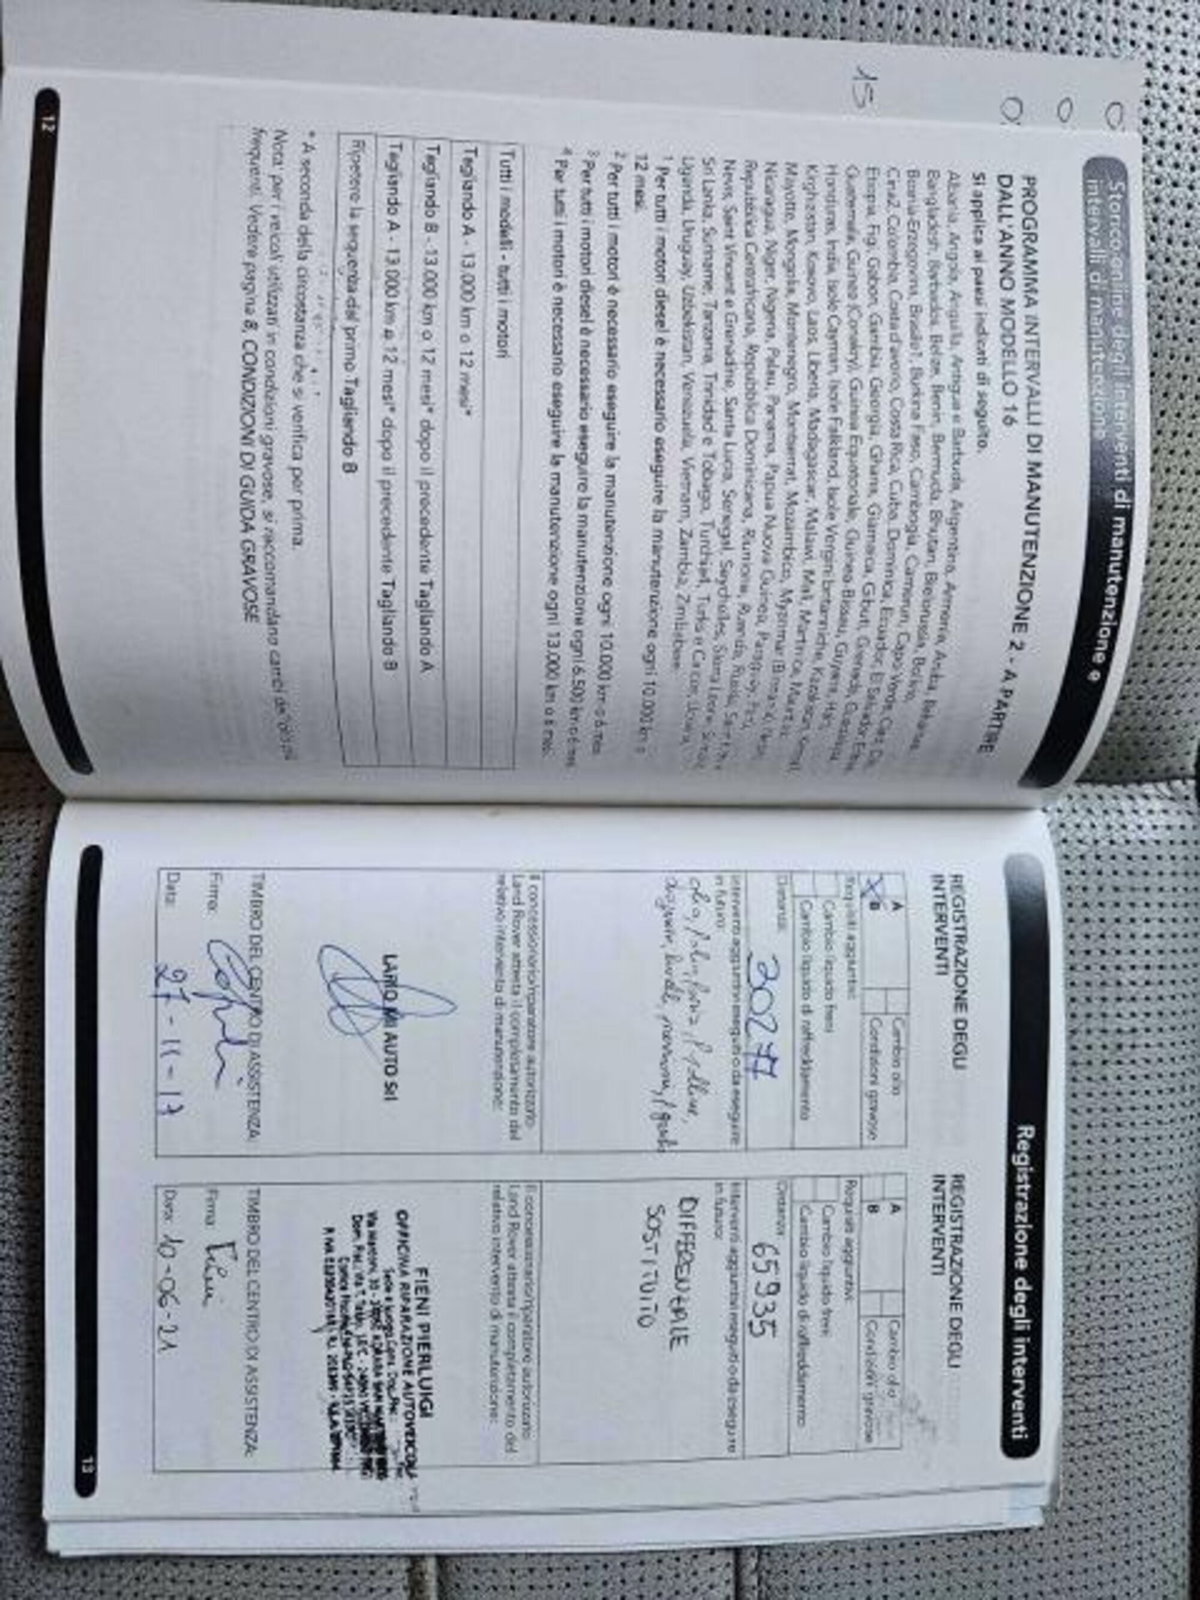 15
Storico online degli interventi di manutenzione e
intervalli di manutenzione
PROGRAMMA INTERVALLI DI MANUTENZIONE 2 - A PARTIRE
DALL'ANNO MODELLO 16
Si applica ai paesi indicati di seguito.
Albania, Angola, Anguilla, Antigua e Barbuda, Argentina, Armenia, Aruba, Bahamas,
Bangladesh, Barbados, Belize, Benin, Bermuda, Bhutan, Bielorussia, Bolivia,
Bosnia-Erzegovina, Brasile1, Burkina Faso, Cambogia, Camerun, Capo Verde, Ciad, Cile,
Cina2, Colombia, Costa d'avorio, Costa Rica, Cuba, Dominica, Ecuador, El Salvador,
Etiopia, Figi, Gabon, Gambia, Georgia, Ghana, Giamaica, Gibuti, Grenada, Guadalupa,
Guatemala, Guinea (Conakry), Guinea Equatoriale, Guinea-Bissau, Guyana, Haiti,
Honduras, India, Isole Cayman, Isole Falkland, Isole Vergini britanniche, Kazakistan,
Kirghizistan, Kosovo, Laos, Liberia, Madagascar, Malawi, Mali, Martinica,
Mayotte, Mongolia, Montenegro, Montserrat, Mozambico, Myanmar
Nicaragua, Niger, Nigeria, Palau, Panama, Papua Nuova Guinea, Paraguay, Perù,
Repubblica Centrafricana, Repubblica Dominicana, Riunione, Ruanda, Russia,
Nevis, Saint Vincent e Grenadine, Santa Lucia, Senegal, Seychelles, Sierra Leone,
Sri Lanka, Suriname, Tanzania, Trinidad e Tobago, Turchia4, Turks e Caicos, Ucraina,
Uganda, Uruguay, Uzbekistan, Venezuela, Vietnam, Zambia, Zimbabwe.
1 Per tutti i motori diesel è necessario eseguire la manutenzione ogni 10.000 km o
12 mesi.
2 Per tutti i motori è necessario eseguire la manutenzione ogni 10.000 km o 6 mesi.
3 Per tutti i motori diesel è necessario eseguire la manutenzione ogni 6.500 km o 6 mesi.
4 Per tutti i motori è necessario eseguire la manutenzione ogni 13.000 km o 6 mesi.
Tutti i modelli - tutti i motori
Tagliando A - 13.000 km o 12 mesi*
Tagliando B - 13.000 km o 12 mesi* dopo il precedente Tagliando A
Tagliando A - 13.000 km o 12 mesi* dopo il precedente Tagliando B
Ripetere la sequenza dal primo Tagliando B
* A seconda della circostanza che si verifica per prima.
Nota: per i veicoli utilizzati in condizioni gravose, si raccomandano cambi dell'olio più
frequenti. Vedere pagina 8, CONDIZIONI DI GUIDA GRAVOSE
12
Registrazione degli interventi
REGISTRAZIONE DEGLI
INTERVENTI
A Cambio olio
X B Condizioni gravose
Requisiti aggiuntivi:
Cambio liquido freni
Cambio liquido di raffreddamento
Distanza: 30277
Interventi aggiuntivi eseguiti o da eseguire
in futuro:
Il concessionario/riparatore autorizzato
Land Rover attesta il completamento del
relativo intervento di manutenzione:
LARIO MI AUTO Srl
TIMBRO DEL CENTRO DI ASSISTENZA:
Firma:
Data: 27-11-17
REGISTRAZIONE DEGLI
INTERVENTI
A Cambio olio
B Condizioni gravose
Requisiti aggiuntivi:
Cambio liquido freni
Cambio liquido di raffreddamento
Distanza: 65935
Interventi aggiuntivi eseguiti o da eseguire
in futuro:
DIFFERENZIALE
SOSTITUITO
Il concessionario/riparatore autorizzato
Land Rover attesta il completamento del
relativo intervento di manutenzione:
FIENI PIERLUIGI
OFFICINA RIPARAZIONE AUTOVEICOLI
TIMBRO DEL CENTRO DI ASSISTENZA:
Firma:
Data: 10-06-21
13